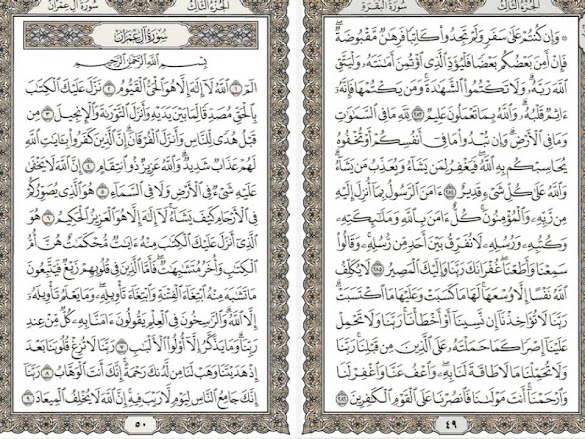 سُورَةُ البَقَرَةِ
الجُزْءُ الثَّالِثُ
وَإِن كُنتُمْ عَلَىٰ سَفَرٍ وَلَمْ تَجِدُوا۟ كَاتِبًا فَرِهَٰنٌ مَّقْبُوضَةٌ
فَإِنْ أَمِنَ بَعْضُكُم بَعْضًا فَلْيُؤَدِّ ٱلَّذِى ٱؤْتُمِنَ أَمَٰنَتَهُۥ وَلْيَتَّقِ
ٱللَّهَ رَبَّهُۥ وَلَا تَكْتُمُوا۟ ٱلشَّهَٰدَةَ وَمَن يَكْتُمْهَا فَإِنَّهُۥٓ
ءَاثِمٌ قَلْبُهُۥ وَٱللَّهُ بِمَا تَعْمَلُونَ عَلِيمٌ ٢٨٣ لِّلَّهِ مَا فِى ٱلسَّمَٰوَٰتِ
وَمَا فِى ٱلْأَرْضِ وَإِن تُبْدُوا۟ مَا فِىٓ أَنفُسِكُمْ أَوْ تُخْفُوهُ
يُحَاسِبْكُم بِهِ ٱللَّهُ فَيَغْفِرُ لِمَن يَشَآءُ وَيُعَذِّبُ مَن يَشَآءُ
وَٱللَّهُ عَلَىٰ كُلِّ شَىْءٍ قَدِيرٌ ٢٨٤ ءَامَنَ ٱلرَّسُولُ بِمَآ أُنزِلَ إِلَيْهِ
مِن رَّبِّهِۦ وَٱلْمُؤْمِنُونَ كُلٌّ ءَامَنَ بِٱللَّهِ وَمَلَٰٓئِكَتِهِۦ
وَكُتُبِهِۦ وَرُسُلِهِۦ لَا نُفَرِّقُ بَيْنَ أَحَدٍ مِّن رُّسُلِهِۦ وَقَالُوا۟
سَمِعْنَا وَأَطَعْنَا غُفْرَانَكَ رَبَّنَا وَإِلَيْكَ ٱلْمَصِيرُ ٢٨٥ لَا يُكَلِّفُ
ٱللَّهُ نَفْسًا إِلَّا وُسْعَهَا لَهَا مَا كَسَبَتْ وَعَلَيْهَا مَا ٱكْتَسَبَتْ
رَبَّنَا لَا تُؤَاخِذْنَآ إِن نَّسِينَآ أَوْ أَخْطَأْنَا رَبَّنَا وَلَا تَحْمِلْ
عَلَيْنَآ إِصْرًا كَمَا حَمَلْتَهُۥ عَلَى ٱلَّذِينَ مِن قَبْلِنَا رَبَّنَا
وَلَا تُحَمِّلْنَا مَا لَا طَاقَةَ لَنَا بِهِۦ وَٱعْفُ عَنَّا وَٱغْفِرْ لَنَا
وَٱرْحَمْنَآ أَنتَ مَوْلَىٰنَا فَٱنصُرْنَا عَلَى ٱلْقَوْمِ ٱلْكَٰفِرِينَ ٢٨٦
٤٩
الجُزْءُ الثَّالِثُ
سُورَةُ آلِ عِمْرَانَ
سُورَةُ آلِ عِمْرَانَ
بِسْمِ ٱللَّهِ ٱلرَّحْمَٰنِ ٱلرَّحِيمِ
الٓمٓ ١ ٱللَّهُ لَآ إِلَٰهَ إِلَّا هُوَ ٱلْحَىُّ ٱلْقَيُّومُ ٢ نَزَّلَ عَلَيْكَ ٱلْكِتَٰبَ
بِٱلْحَقِّ مُصَدِّقًا لِّمَا بَيْنَ يَدَيْهِ وَأَنزَلَ ٱلتَّوْرَىٰةَ وَٱلْإِنجِيلَ ٣ مِن
قَبْلُ هُدًى لِّلنَّاسِ وَأَنزَلَ ٱلْفُرْقَانَ إِنَّ ٱلَّذِينَ كَفَرُوا۟ بِـَٔايَٰتِ ٱللَّهِ
لَهُمْ عَذَابٌ شَدِيدٌ وَٱللَّهُ عَزِيزٌ ذُو ٱنتِقَامٍ ٤ إِنَّ ٱللَّهَ لَا يَخْفَىٰ
عَلَيْهِ شَىْءٌ فِى ٱلْأَرْضِ وَلَا فِى ٱلسَّمَآءِ ٥ هُوَ ٱلَّذِى يُصَوِّرُكُمْ
فِى ٱلْأَرْحَامِ كَيْفَ يَشَآءُ لَآ إِلَٰهَ إِلَّا هُوَ ٱلْعَزِيزُ ٱلْحَكِيمُ ٦ هُوَ
ٱلَّذِىٓ أَنزَلَ عَلَيْكَ ٱلْكِتَٰبَ مِنْهُ ءَايَٰتٌ مُّحْكَمَٰتٌ هُنَّ أُمُّ
ٱلْكِتَٰبِ وَأُخَرُ مُتَشَٰبِهَٰتٌ فَأَمَّا ٱلَّذِينَ فِى قُلُوبِهِمْ زَيْغٌ فَيَتَّبِعُونَ
مَا تَشَٰبَهَ مِنْهُ ٱبْتِغَآءَ ٱلْفِتْنَةِ وَٱبْتِغَآءَ تَأْوِيلِهِۦ وَمَا يَعْلَمُ تَأْوِيلَهُۥٓ
إِلَّا ٱللَّهُ وَٱلرَّٰسِخُونَ فِى ٱلْعِلْمِ يَقُولُونَ ءَامَنَّا بِهِۦ كُلٌّ مِّنْ عِندِ
رَبِّنَا وَمَا يَذَّكَّرُ إِلَّآ أُو۟لُوا۟ ٱلْأَلْبَٰبِ ٧ رَبَّنَا لَا تُزِغْ قُلُوبَنَا بَعْدَ
إِذْ هَدَيْتَنَا وَهَبْ لَنَا مِن لَّدُنكَ رَحْمَةً إِنَّكَ أَنتَ ٱلْوَهَّابُ ٨ رَبَّنَآ
إِنَّكَ جَامِعُ ٱلنَّاسِ لِيَوْمٍ لَّا رَيْبَ فِيهِ إِنَّ ٱللَّهَ لَا يُخْلِفُ ٱلْمِيعَادَ ٩
٥٠